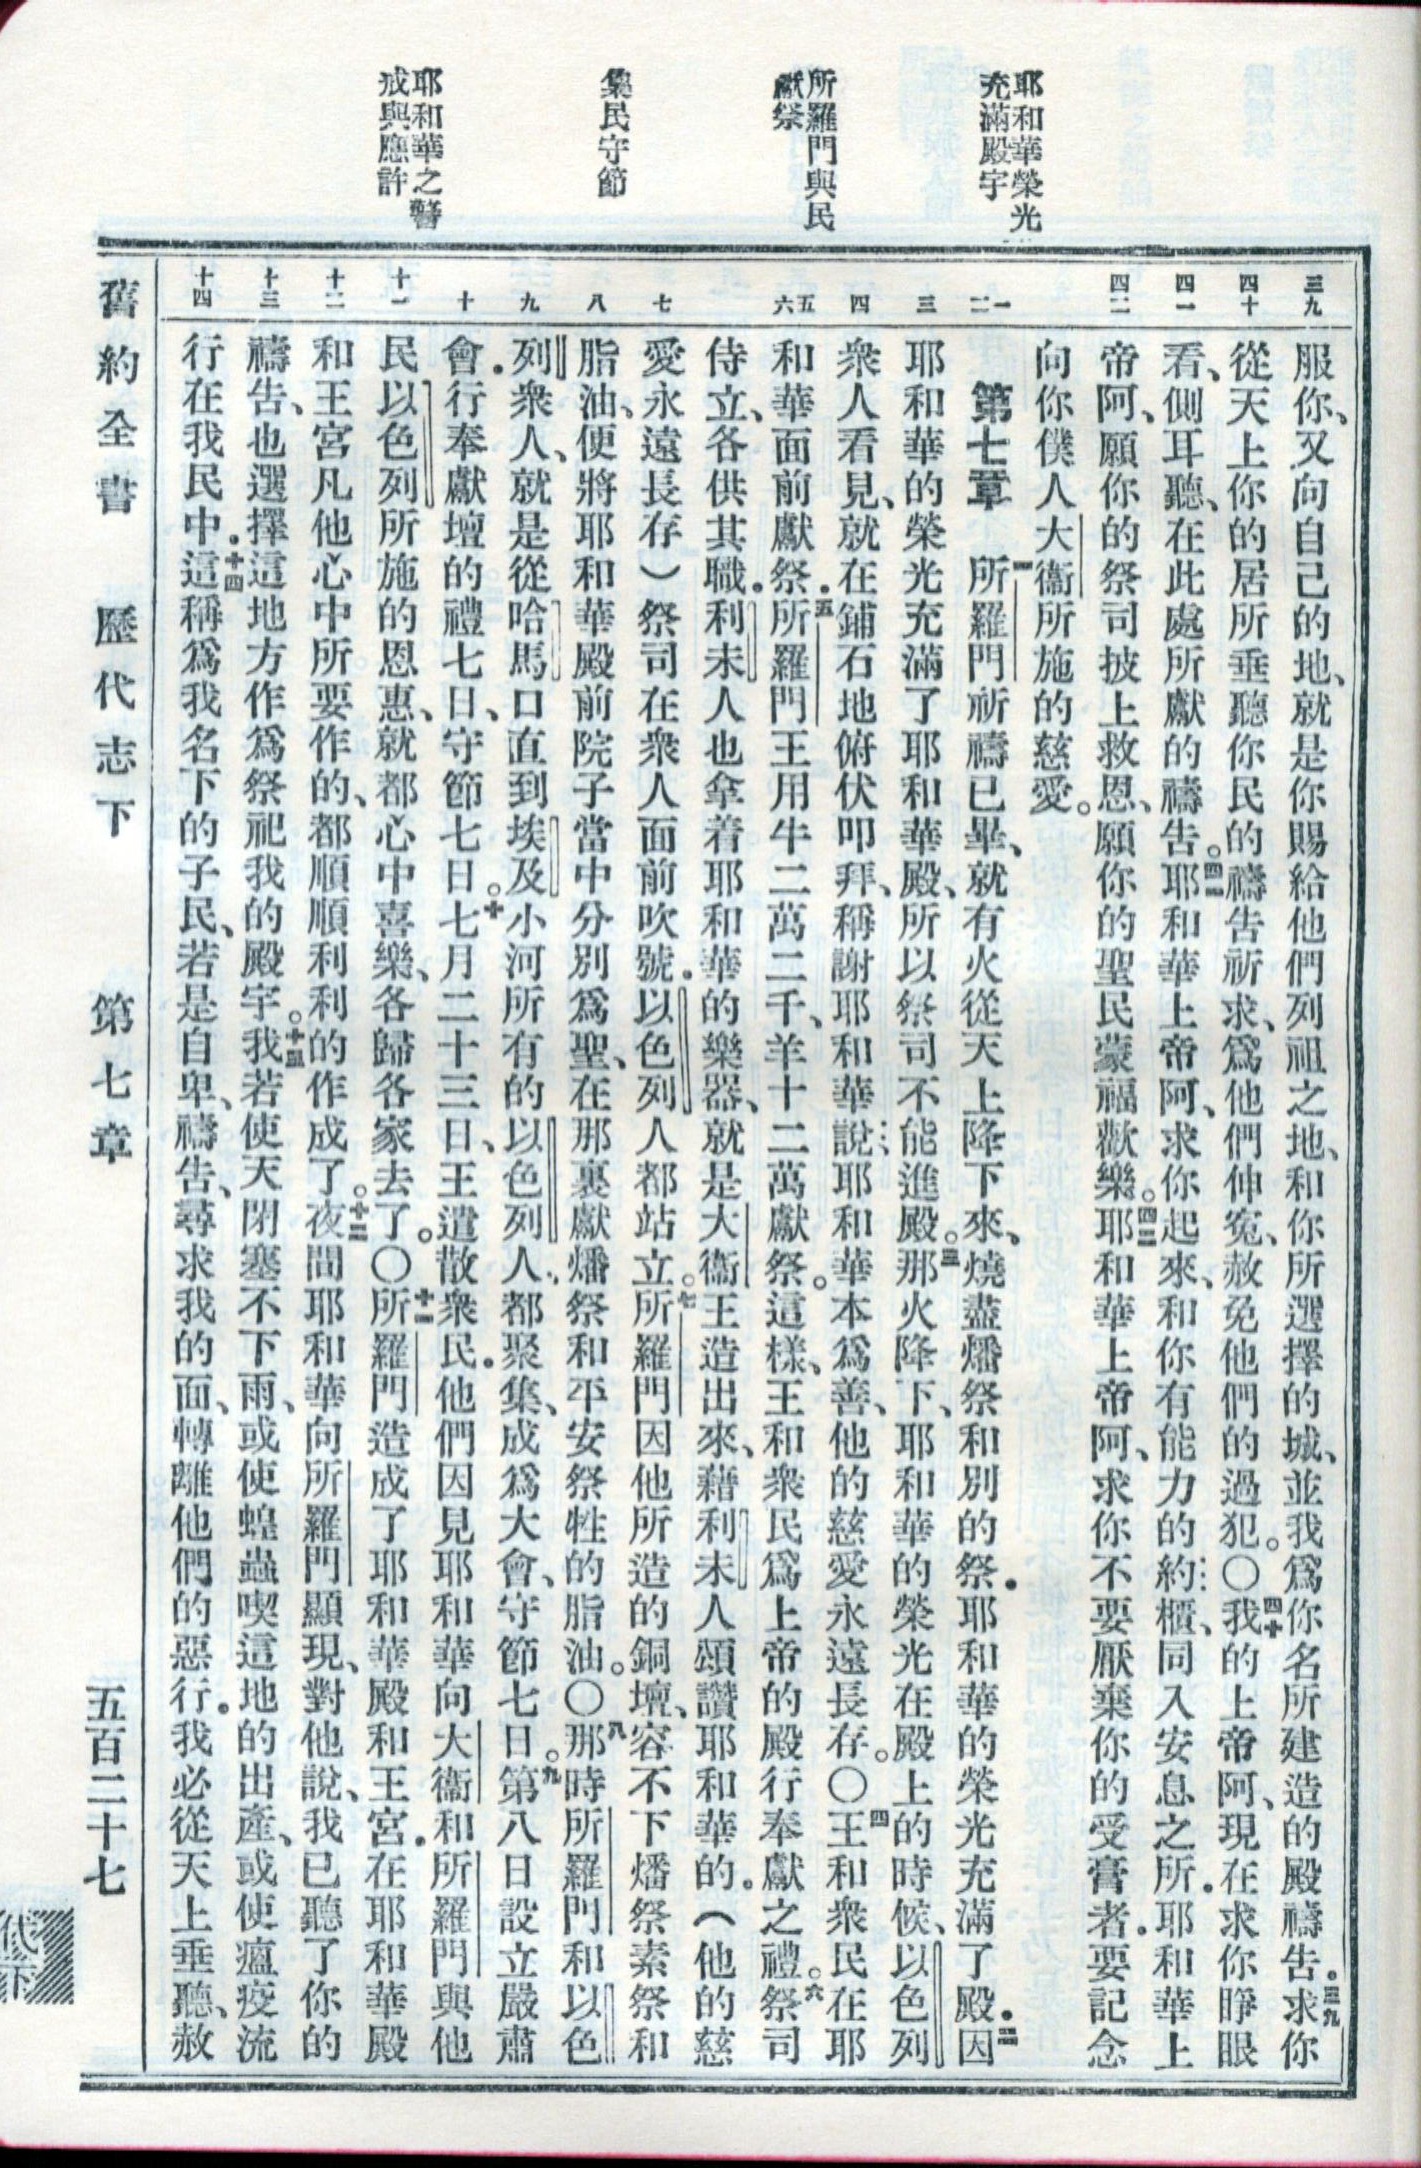 耶和華榮光
充滿殿宇
所羅門與民
獻祭
集民守節
耶和華之警
戒與應許
三九
四十
四一
四二
一
二
三
四
五
六
七
八
九
十
十一
十二
十三
十四
服你、又向自己的地、就是你賜給他們列祖之地、和你所選擇的城、並我爲你名所建造的殿禱告．三九求你
從天上你的居所垂聽你民的禱告祈求、爲他們伸寃、赦免他們的過犯。〇四十我的上帝阿、現在求你睜眼
看、側耳聽、在此處所獻的禱告。四一耶和華上帝阿、求你起來、和你有能力的約櫃、同入安息之所．耶和華上
帝阿、願你的祭司披上救恩、願你的聖民蒙福歡樂。四二耶和華上帝阿、求你不要厭棄你的受膏者．要記念
向你僕人大衞所施的慈愛。
第七章 一所羅門祈禱已畢、就有火從天上降下來、燒盡燔祭和別的祭．耶和華的榮光充滿了殿．二因
耶和華的榮光充滿了耶和華殿、所以祭司不能進殿。三那火降下、耶和華的榮光在殿上的時候、以色列
衆人看見、就在鋪石地俯伏叩拜、稱謝耶和華說、耶和華本爲善、他的慈愛永遠長存。〇四王和衆民在耶
和華面前獻祭．五所羅門王用牛二萬二千、羊十二萬獻祭。這樣、王和衆民爲上帝的殿行奉獻之禮。六祭司
侍立、各供其職．利未人也拿着耶和華的樂器、就是大衞王造出來、藉利未人頌讚耶和華的．（他的慈
愛永遠長存）祭司在衆人面前吹號．以色列人都站立。七所羅門因他所造的銅壇、容不下燔祭素祭和
脂油、便將耶和華殿前院子當中分別爲聖、在那裏獻燔祭和平安祭牲的脂油。〇八那時所羅門和以色
列衆人、就是從哈馬口直到埃及小河所有的以色列人、都聚集、成爲大會、守節七日。九第八日設立嚴肅
會．行奉獻壇的禮七日、守節七日。十七月二十三日、王遣散衆民．他們因見耶和華向大衞和所羅門與他
民以色列所施的恩惠、就都心中喜樂、各歸各家去了。〇十一所羅門造成了耶和華殿和王宮．在耶和華殿
和王宮凡他心中所要作的、都順順利利的作成了。十二夜間耶和華向所羅門顯現、對他說、我已聽了你的
禱告、也選擇這地方作爲祭祀我的殿宇。十三我若使天閉塞不下雨、或使蝗蟲喫這地的出產、或使瘟疫流
行在我民中．十四這稱爲我名下的子民、若是自卑、禱告、尋求我的面、轉離他們的惡行．我必從天上垂聽、赦
舊約全書 歷代志下 第七章 五百二十七
代下